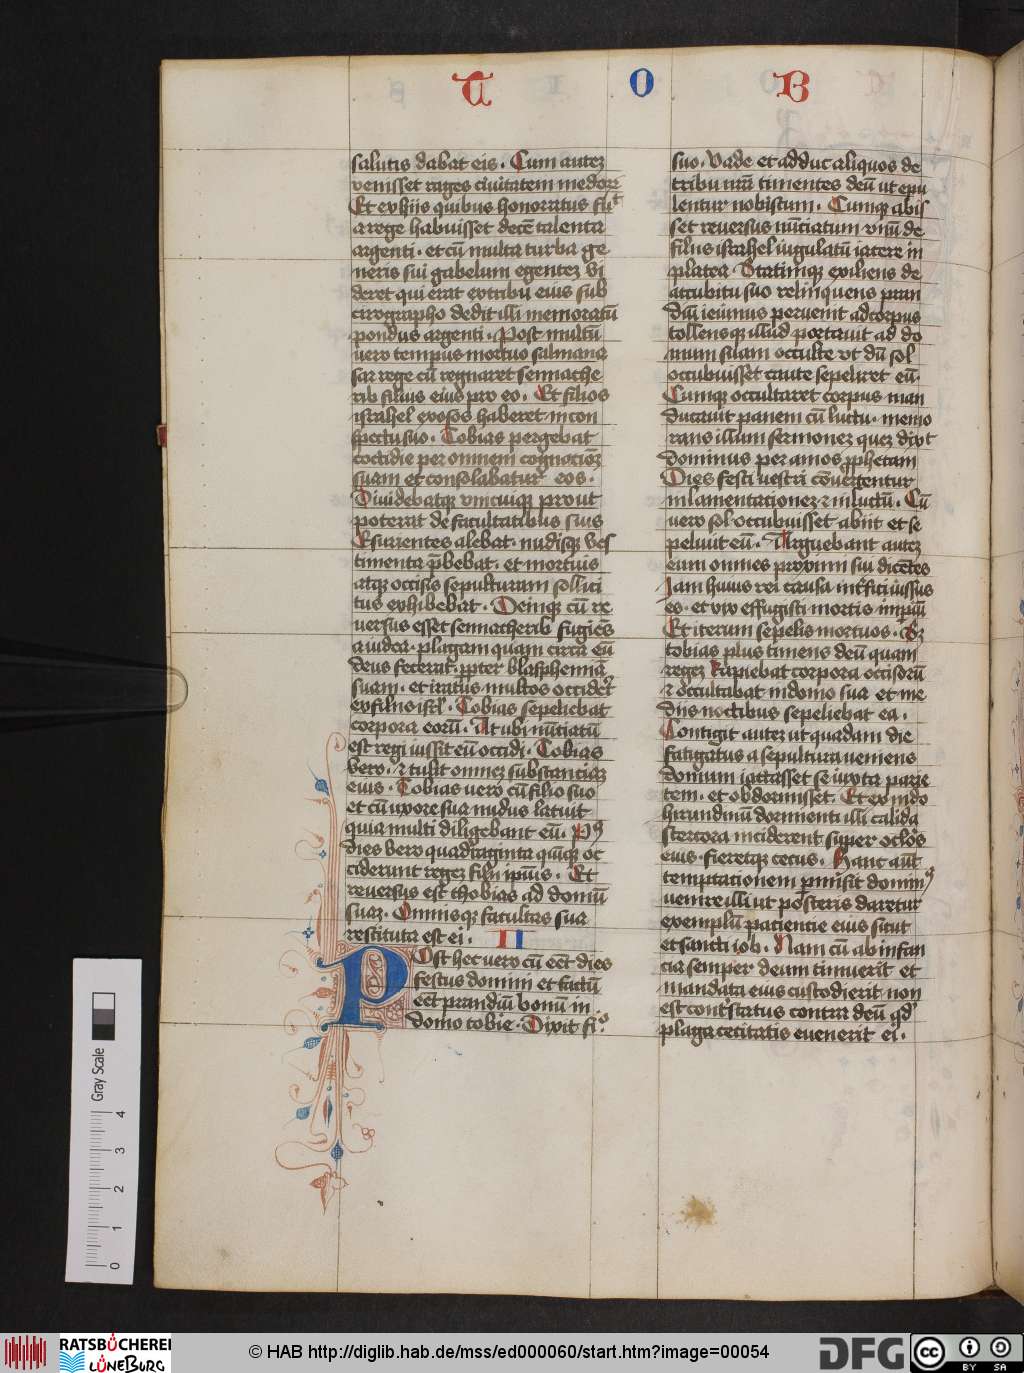 T O B
salutis dabat eis. Cum autez
venisset rages ciuitatem medorz
Et ex hiis quibus honoratus fuͭ
a rege habuisset decē talenta
argenti. et cū multa turba ge
neris sui gabelum egentez vi
deret qui erat ex tribu eius sub
cirographo dedit illi memoratū
pondus argenti. Post multū
uero tempus mortuo salmana
sar rege cū regnaret sennache
rib filius eius pro eo. Et filios
israhel exosos haberet in con
spectu suo. Tobias pergebat
cottidie per omnem cognacionz
suam et consolabatur eos.
Diuidebatqz vnicuiqz prout
poterat de facultatibus suis
Esurientes alebat. nudisqz ves
timenta p̄bebat. et mortuis
atqz occisis sepulturam sollici
tus exhibebat. Deinqz cū re
uersus esset sennacherib fugiēs
a iudea. plagam quam circa eū
deus fecerat. ꝓpter blasphemiā
suam. et iratus multos occideret
ex filiis isrl̄. Tobias sepeliebat
corpora eorū. At ubi nūtiatū
est regi iussit eū occidi. Tobias
vero. et tulit omnez substanciaz
eius. Tobias uero cū filio suo
et cū uxore sua nudus latuit
quia multi diligebant eū. Pꝰ
dies vero quadraginta quīqz oc
ciderunt regez filii ipsius. Et
reuersus est thobias ad domū
suaz. Omnisqz facultas sua
restituta est ei. II
Post hec uero cū eēt dies
festus domini et factū
eēt prandiū bonū in
domo tobie. Dixit fiͦ
suo. Vade et adduc aliquos de
tribu nrā timentes deū ut epu
lentur nobiscum. Cumqz abis
set reuersus nūtiatum vnū de
filiis israhel iugulatū iacere in
platea. Statimqz exiliens de
accubitu suo relinquens pran
diū ieiunus peruenit ad corpus
tollensqz illud portauit ad do
mum suam occulte vt dū sol
occubuisset caute sepeliret eū.
Cumqz occultaret corpus man
ducauit panem cū luctu. memo
rans illum sermonez quez dixit
dominus per amos ꝓphetam
Dies festi uestri cōuertentur
in lamentacionez et in luctū. Cū
uero sol occubuisset abiit et se
peliuit eū. Arguebant autez
eum omnes proximi sui dicētes
Iam huius rei causa interfici iussus
es. et vix effugisti mortis impiū
Et iterum sepelis mortuos. Sz
tobias plus timens deū quam
regez Rapiebat corpora occisorū
et occultabat in domo sua et me
diis noctibus sepeliebat ea.
Contigit autez ut quadam die
fatigatus a sepultura ueniens
domum iactasset se iuxta parie
tem. et obdormisset. Et ex nido
hirundinū dormienti illi calida
stercora inciderent super oclōs
eius. fieretqz cecus. Hanc aūt
temptacionem pmisit dominꝰ
uenire illi ut posteris daretur
exemplū paciencie eius sicut
et sancti iob. Nam cū ab infan
cia semper deum timuerit et
mandata eius custodierit non
est contristatus contra deū qd
plaga cecitatis euenerit ei.
Gray Scale
0 1 2 3 4
RATSBÜCHEREI
LÜNEBURG
© HAB http://diglib.hab.de/mss/ed000060/start.htm?image=00054
DFG
cc BY SA